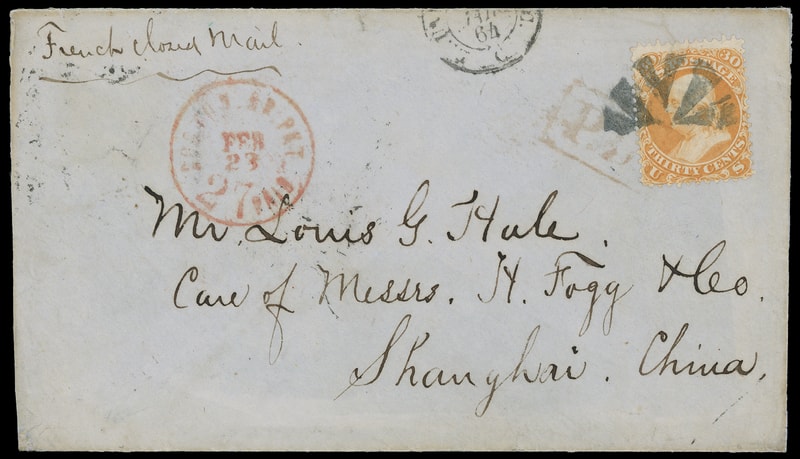 French Closed Mail.
64
30
POSTAGE
THIRTY CENTS
U S
BOSTON BR. PKT.
FEB
23
27
PAID
Mr. Louis G. Hale.
Care of Messrs. H. Fogg & Co.
Shanghai. China.